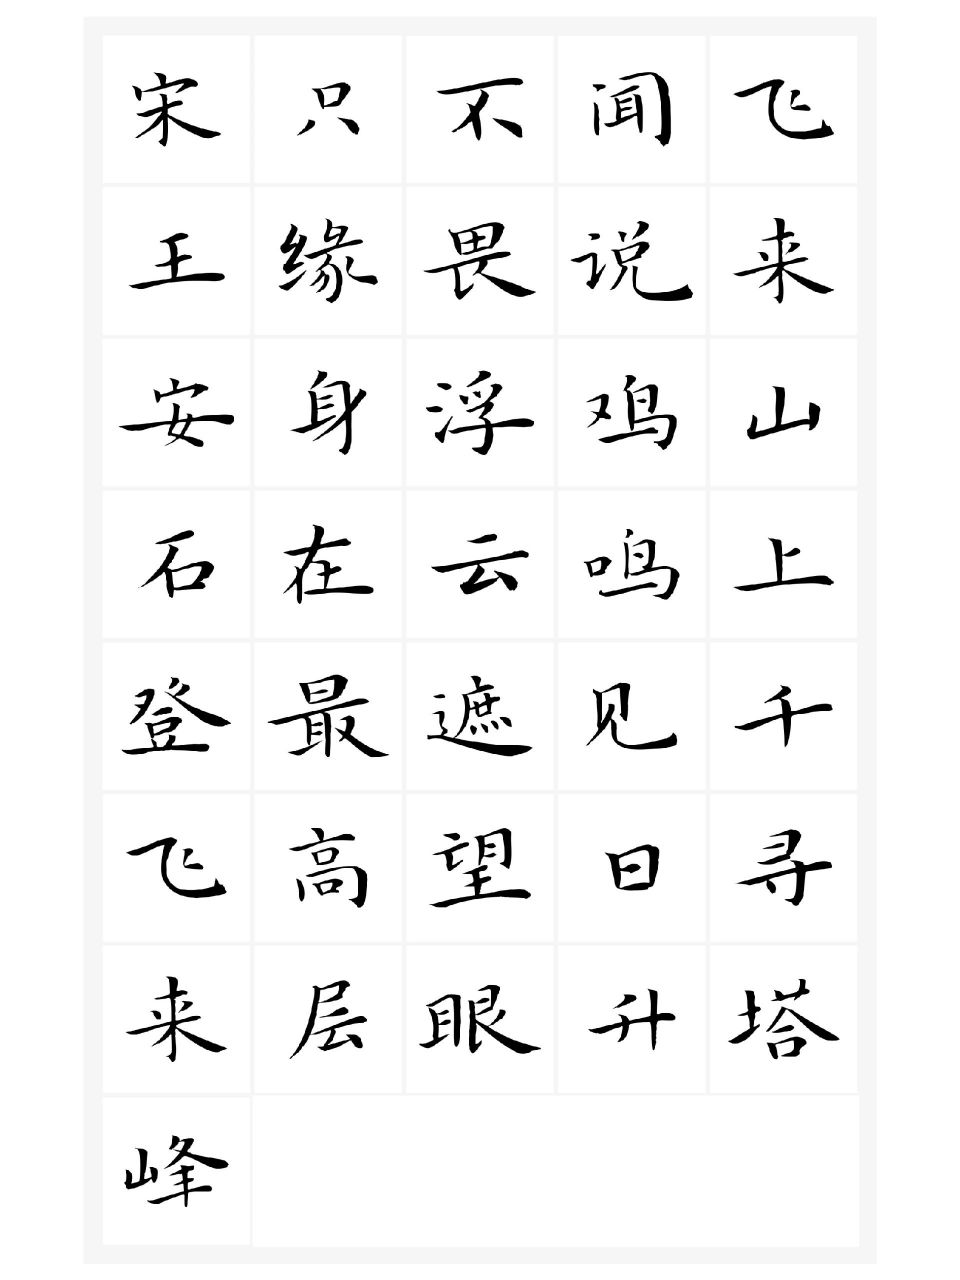 飞来山上千寻塔
闻说鸡鸣见日升
不畏浮云遮望眼
只缘身在最高层
宋王安石登飞来峰